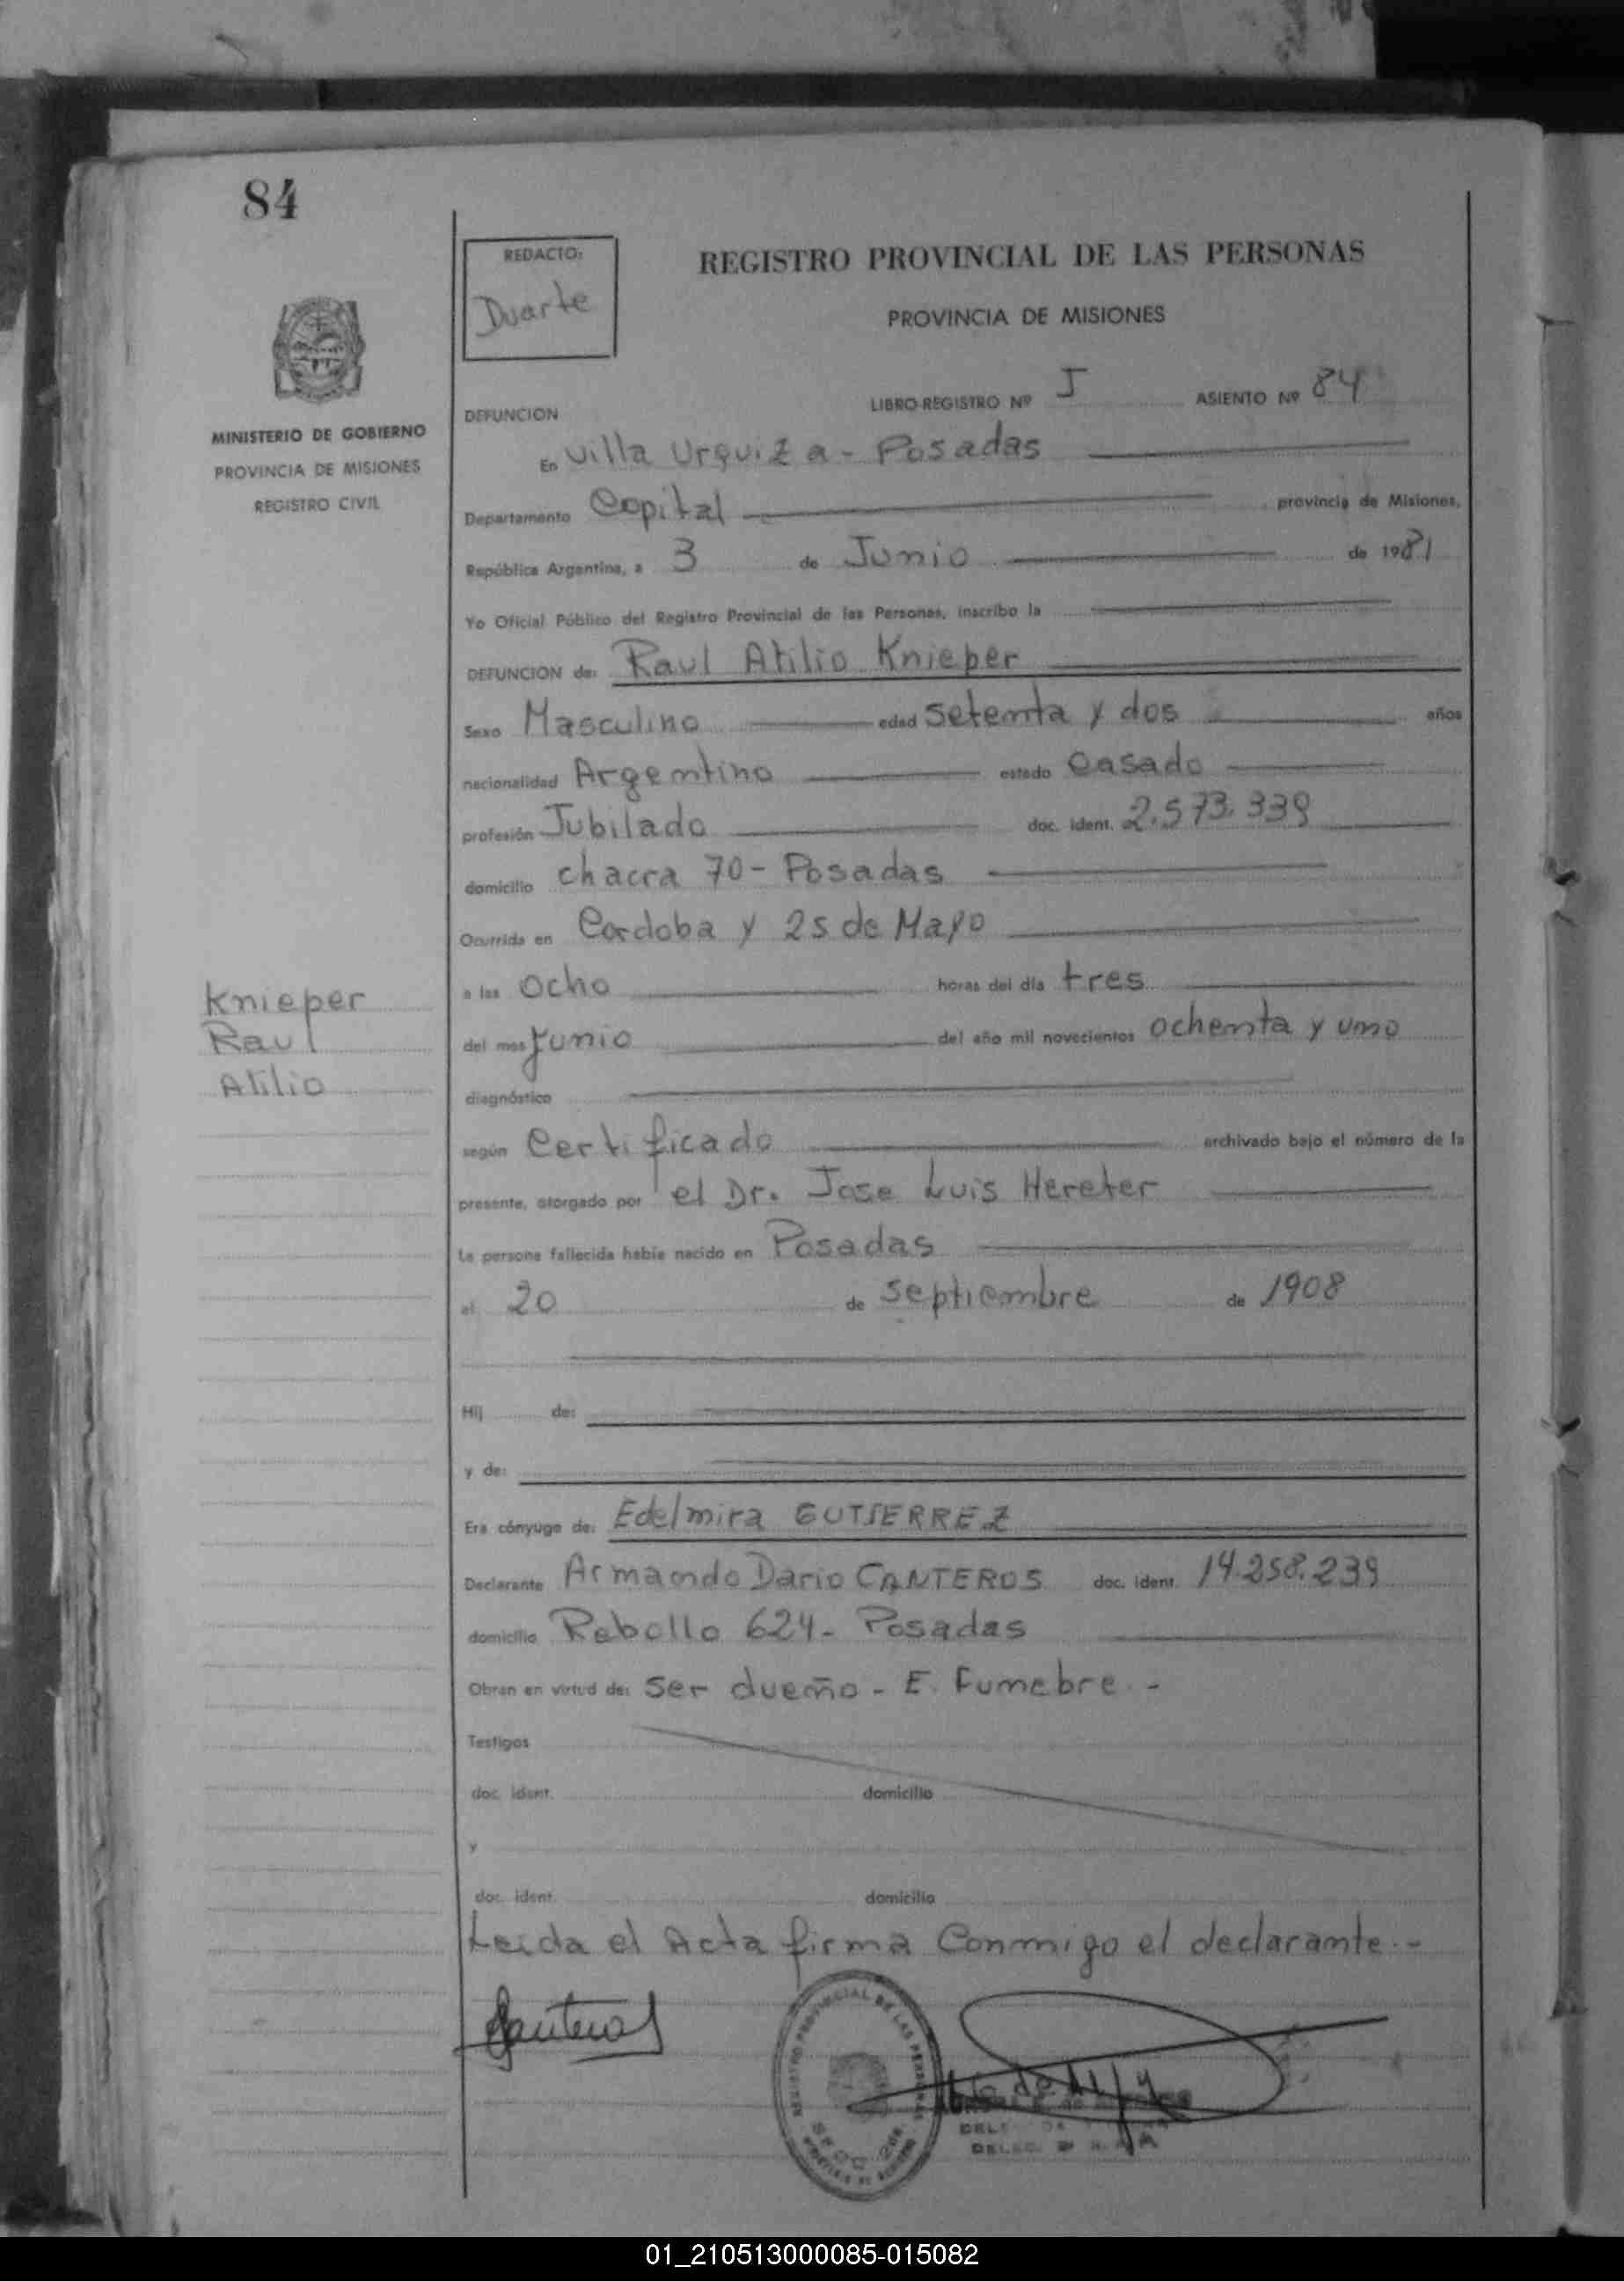 84
REDACTO:
Duarte
REGISTRO PROVINCIAL DE LAS PERSONAS
PROVINCIA DE MISIONES
MINISTERIO DE GOBIERNO
PROVINCIA DE MISIONES
REGISTRO CIVIL
DEFUNCION LIBRO-REGISTRO Nº I ASIENTO Nº 84
En Villa Urquiza - Posadas
Departamento Capital provincia de Misiones,
República Argentina, a 3 de Junio de 1981
Yo Oficial Público del Registro Provincial de las Personas, inscribo la
DEFUNCION de: Raul Atilio Knieper
Sexo Masculino edad Setenta y dos años
nacionalidad Argentino estado Casado
profesión Jubilado doc. ident. 2.573.339
domicilio chacra 70 - Posadas
Ocurrida en Cordoba y 25 de Mayo
a las Ocho horas del día tres
del mes Junio del año mil novecientos ochenta y uno
diagnóstico
según Certificado archivado bajo el número de la
presente, otorgado por el Dr. Jose Luis Hereter
La persona fallecida había nacido en Posadas
el 20 de Septiembre de 1908
Hij de:
y de:
Era cónyuge de: Edelmira GUTIERREZ
Declarante Armando Dario CANTEROS doc. ident. 14.258.239
domicilio Rebollo 624 - Posadas
Obran en virtud de: Ser dueño - E. Funebre. -
Testigos
doc. ident. domicilio
y
doc. ident. domicilio
Leida el Acta firma Conmigo el declarante. -
Knieper
Raul
Atilio
Canteros
REGISTRO PROVINCIAL DE LAS PERSONAS
01_210513000085-015082